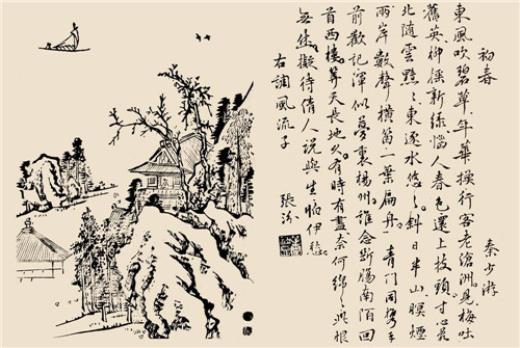 初春
秦少游
東風吹碧草年華換行客老滄洲見梅吐
舊英柳搖新綠惱人春色還上枝頭寸心亂
北隨雲黯々東逐水悠々斜日半山暝煙
兩岸數聲橫笛一葉扁舟青門同攜手
前歡記渾似夢裏楊州誰念斷腸南陌回
首西樓算天長地久有時有盡奈何綿々此恨
無休擬待倩人說與生怕伊愁
右調風流子
張